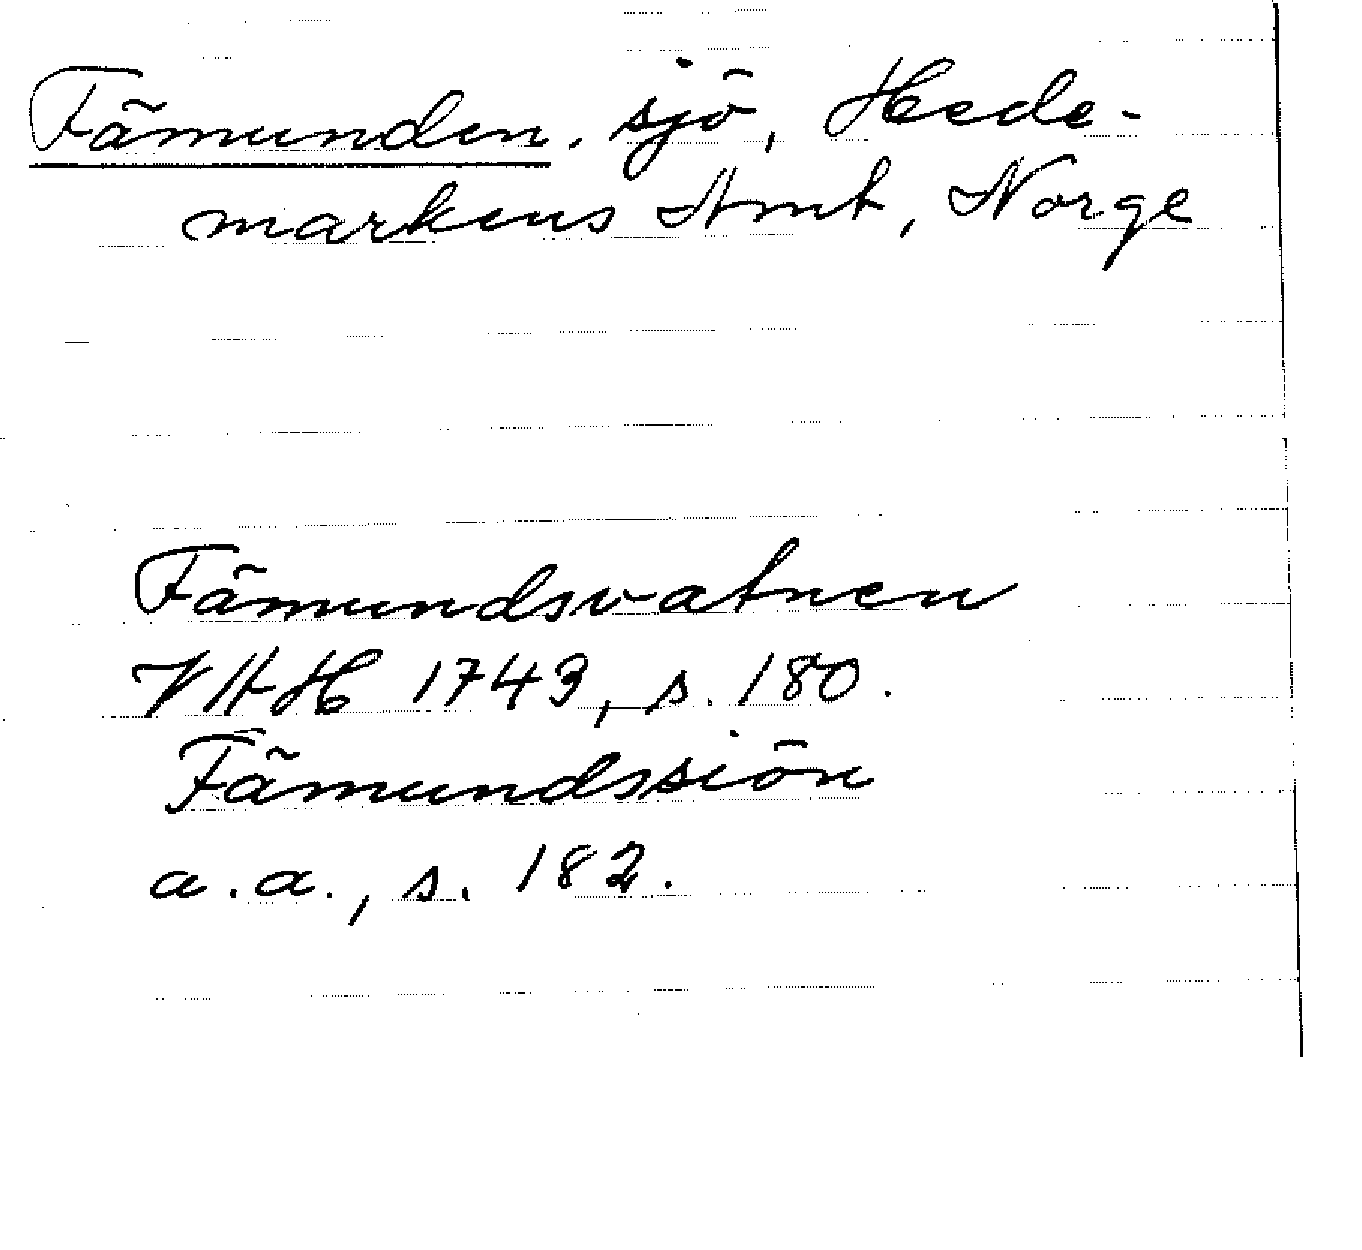 Fämunden, sjö, Hede-
markens Amt, Norge
Fämundsvatnen
VAH 1743, s. 180.
Fämundssiön
a.a., s. 182.